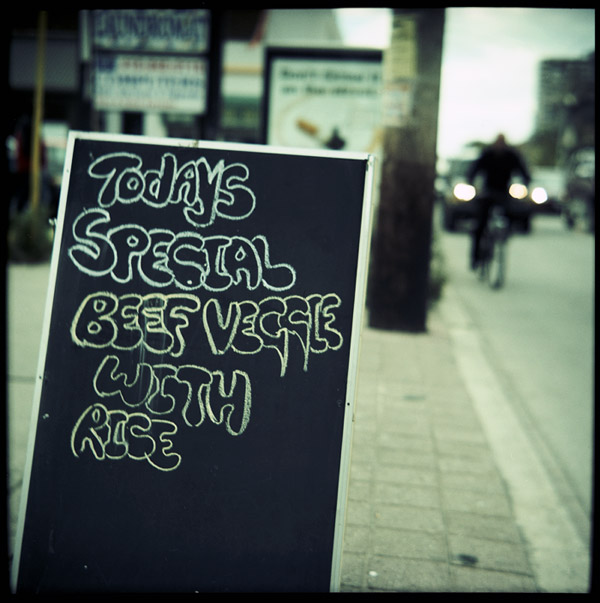 TODAYS
SPECIAL
BEEF VEGGIE
WITH
RICE